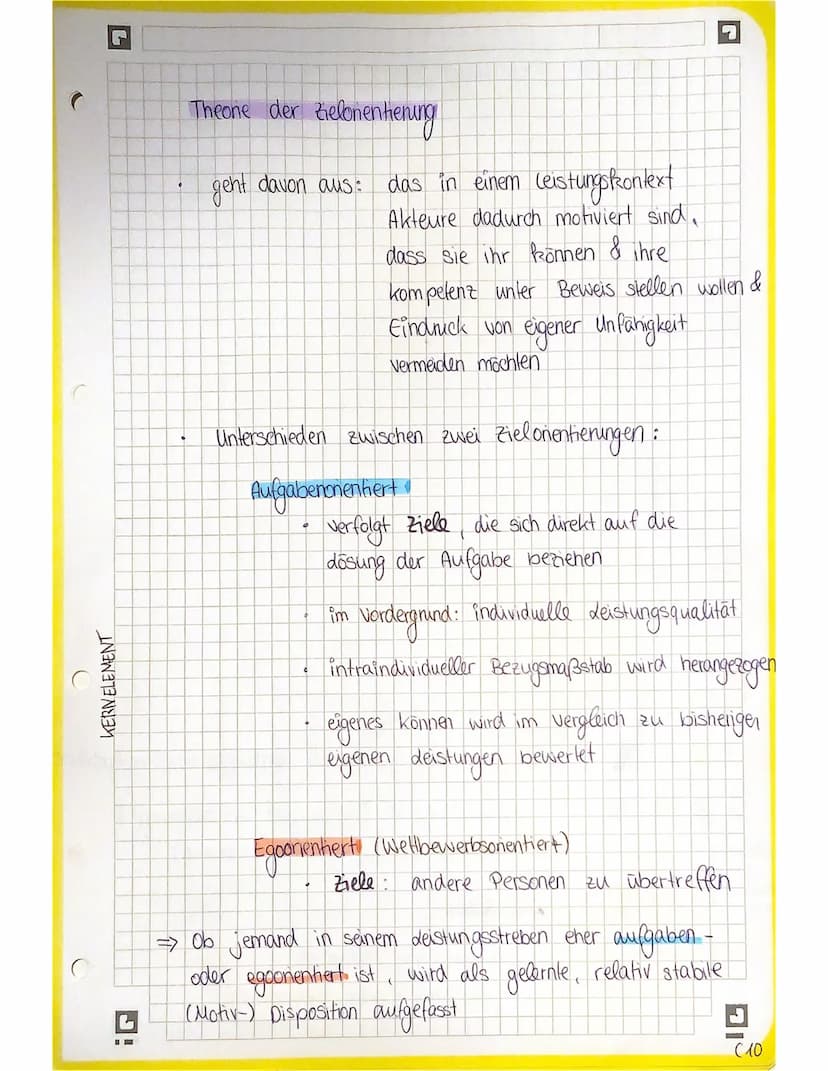 Theorie der Zielorientierung
· geht davon aus: das in einem Leistungskontext
Akteure dadurch motiviert sind,
dass sie ihr können & ihre
kompetenz unter Beweis stellen wollen &
Eindruck von eigener Unfähigkeit
vermeiden möchten
· Unterschieden zwischen zwei Zielorientierungen:
Aufgabenorientiert
· verfolgt Ziele, die sich direkt auf die
Lösung der Aufgabe beziehen
· im Vordergrund: individuelle Leistungsqualität
· intraindividueller Bezugsmaßstab wird herangezogen
· eigenes können wird im Vergleich zu bisherigen
eigenen Leistungen bewertet
KERNELEMENT
Egoorientiert (Wettbewerbsorientiert)
· Ziele: andere Personen zu übertreffen
⇒ Ob jemand in seinem Leistungsstreben eher aufgaben-
oder egoorientiert ist, wird als gelernte, relativ stabile
(Motiv-) Disposition aufgefasst
C10